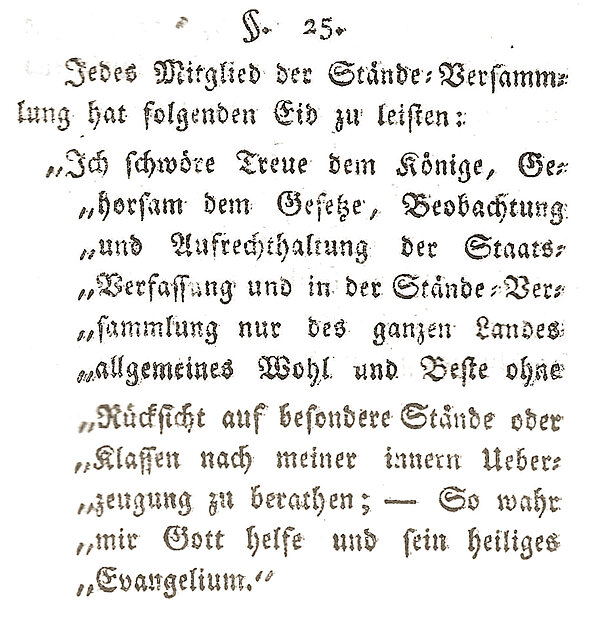 §. 25.
Jedes Mitglied der Stände-Versamm-
lung hat folgenden Eid zu leisten:
„Ich schwöre Treue dem Könige, Ge-
„horsam dem Gesetze, Beobachtung
„und Aufrechthaltung der Staats-
„Verfassung und in der Stände-Ver-
„sammlung nur des ganzen Landes
„allgemeines Wohl und Beste ohne
„Rücksicht auf besondere Stände oder
„Klassen nach meiner innern Ueber-
„zeugung zu berathen; — So wahr
„mir Gott helfe und sein heiliges
„Evangelium.“